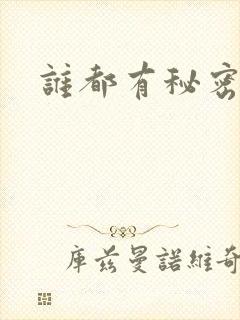 誰都有秘密
库兹曼諾維奇